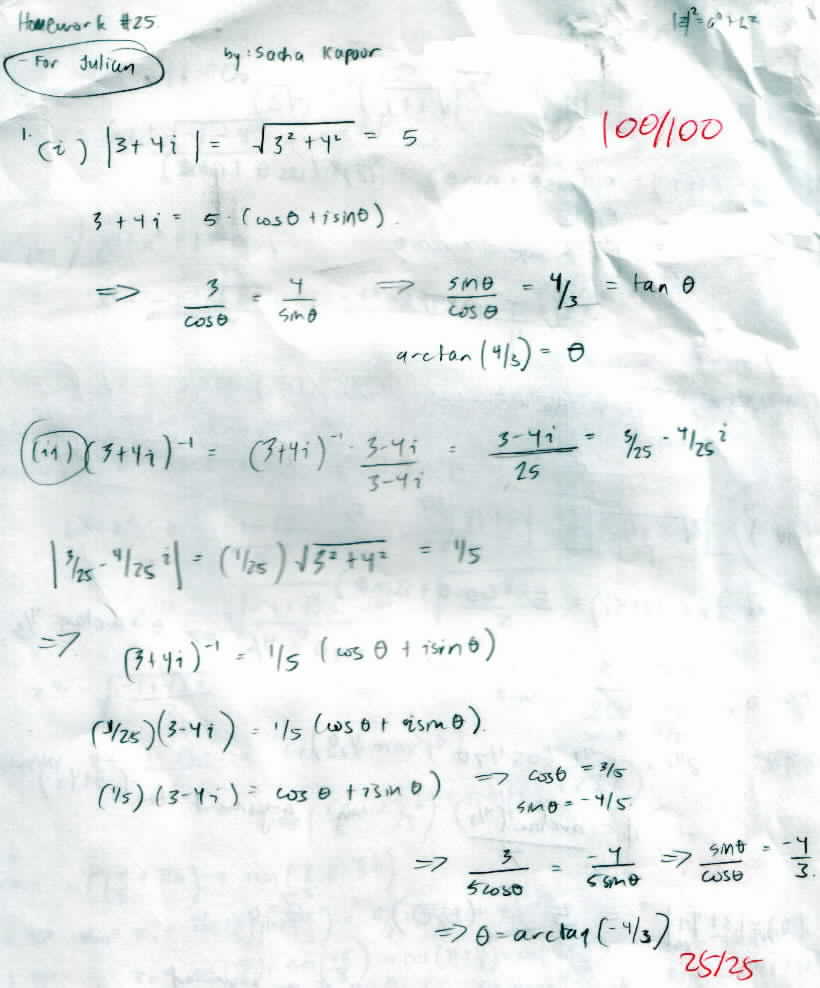 Homework #25
|z|² = a² + b²
- For Julian
by: Sacha Kapoor
100/100
1. (i) |3+4i| = √3² + 4² = 5
3 + 4i = 5 · (cosθ + isinθ).
=> 3/cosθ = 4/sinθ => sinθ/cosθ = 4/3 = tan θ
arctan (4/3) = θ
(ii) (3+4i)⁻¹ = (3+4i)⁻¹ · 3-4i/3-4i = 3-4i/25 = 3/25 - 4/25 i
|3/25 - 4/25 i| = (1/25) √3² + 4² = 1/5
=> (3+4i)⁻¹ = 1/5 (cos θ + isin θ)
(1/25)(3-4i) = 1/5 (cos θ + isin θ).
(1/5) (3-4i) = cos θ + isin θ) => cosθ = 3/5
sinθ = -4/5
=> 3/5cosθ = -4/5sinθ => sinθ/cosθ = -4/3.
=> θ = arctan (-4/3)
25/25